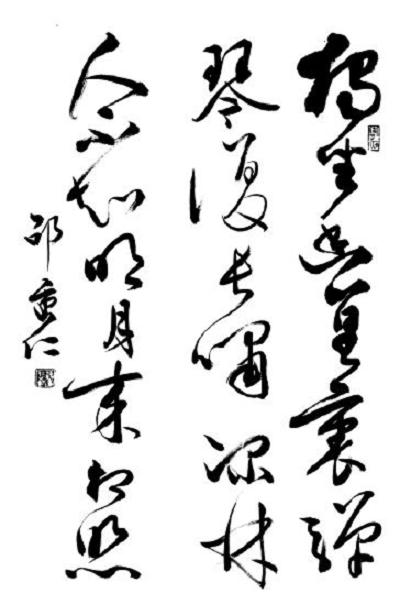 獨坐幽篁裏彈
琴復長嘯深林
人不知明月來相照
邵秉仁